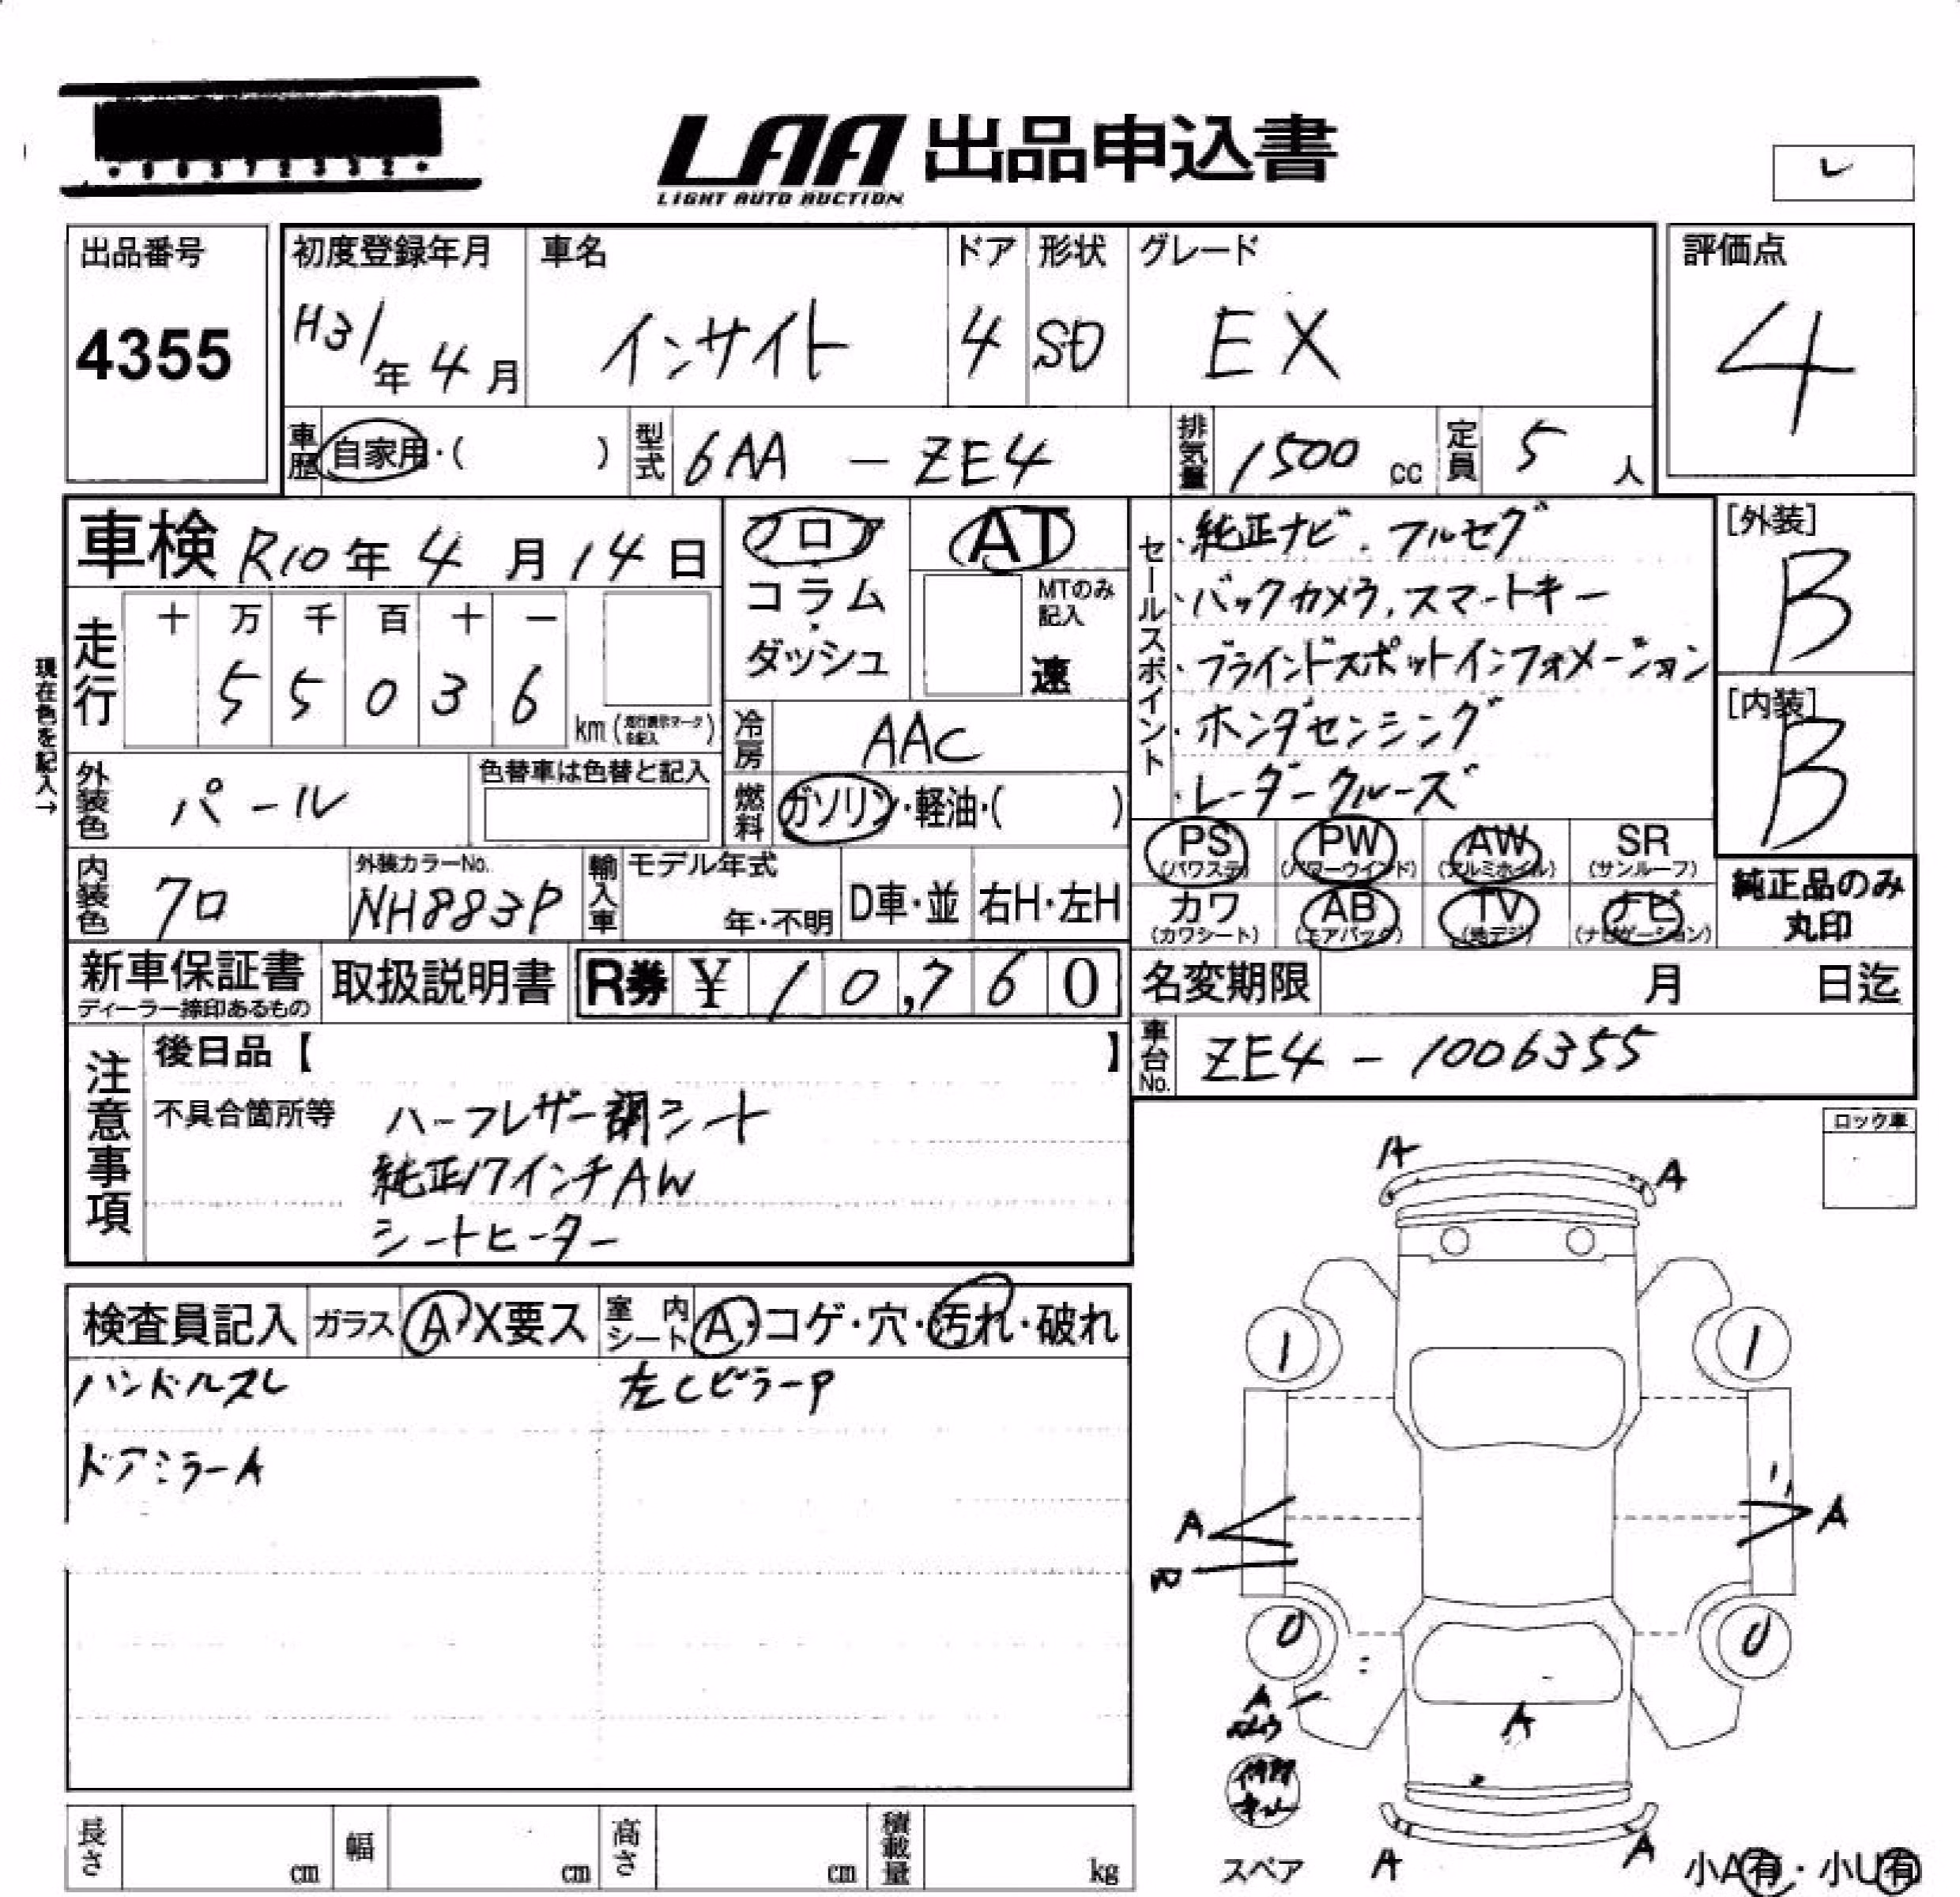 LAA 出品申込書
LIGHT AUTO AUCTION
レ
出品番号
4355
初度登録年月
H31年 4月
車名
インサイト
ドア
4
形状
SD
グレード
EX
評価点
4
車歴
自家用・( )
型式
6AA - ZE4
排気量
1500 cc
定員
5 人
車検 R10年 4月 14日
フロア
コラム
・
ダッシュ
AT
MTのみ記入
速
セールスポイント
・純正ナビ、フルセグ
・バックカメラ、スマートキー
・ブラインドスポットインフォメーション
・ホンダセンシング
・レーダークルーズ
[外装]
B
[内装]
B
現在色を記入→
走行
十 万 千 百 十 一
5 5 0 3 6
km (走行表示マークを記入)
冷房
AAC
外装色
パール
色替車は色替と記入
燃料
ガソリン・軽油・( )
PS
(パワステ)
PW
(パワーウインド)
AW
(アルミホイル)
SR
(サンルーフ)
内装色
クロ
外装カラーNo.
NH883P
輸入車
モデル年式
年・不明
D車・並
右H・左H
カワ
(カワシート)
AB
(エアバック)
TV
(地デジ)
ナビ
(ナビゲーション)
純正品のみ
丸印
新車保証書
ディーラー捺印あるもの
取扱説明書
R券 ¥ 10,760
名変期限 月 日迄
注意事項
後日品【 】
車台No.
ZE4 - 1006355
不具合箇所等
ハーフレザー調シート
純正17インチAW
シートヒーター
ロック車
検査員記入
ガラス
A・X要ス
室内シート
A・コゲ・穴・汚れ・破れ
ハンドルスレ
左CピラーP
ドアミラーA
A
A
1
1
A
A
0
0
A
A
スペア
A
A
小A有・小U有
長さ cm
幅 cm
高さ cm
積載量 kg